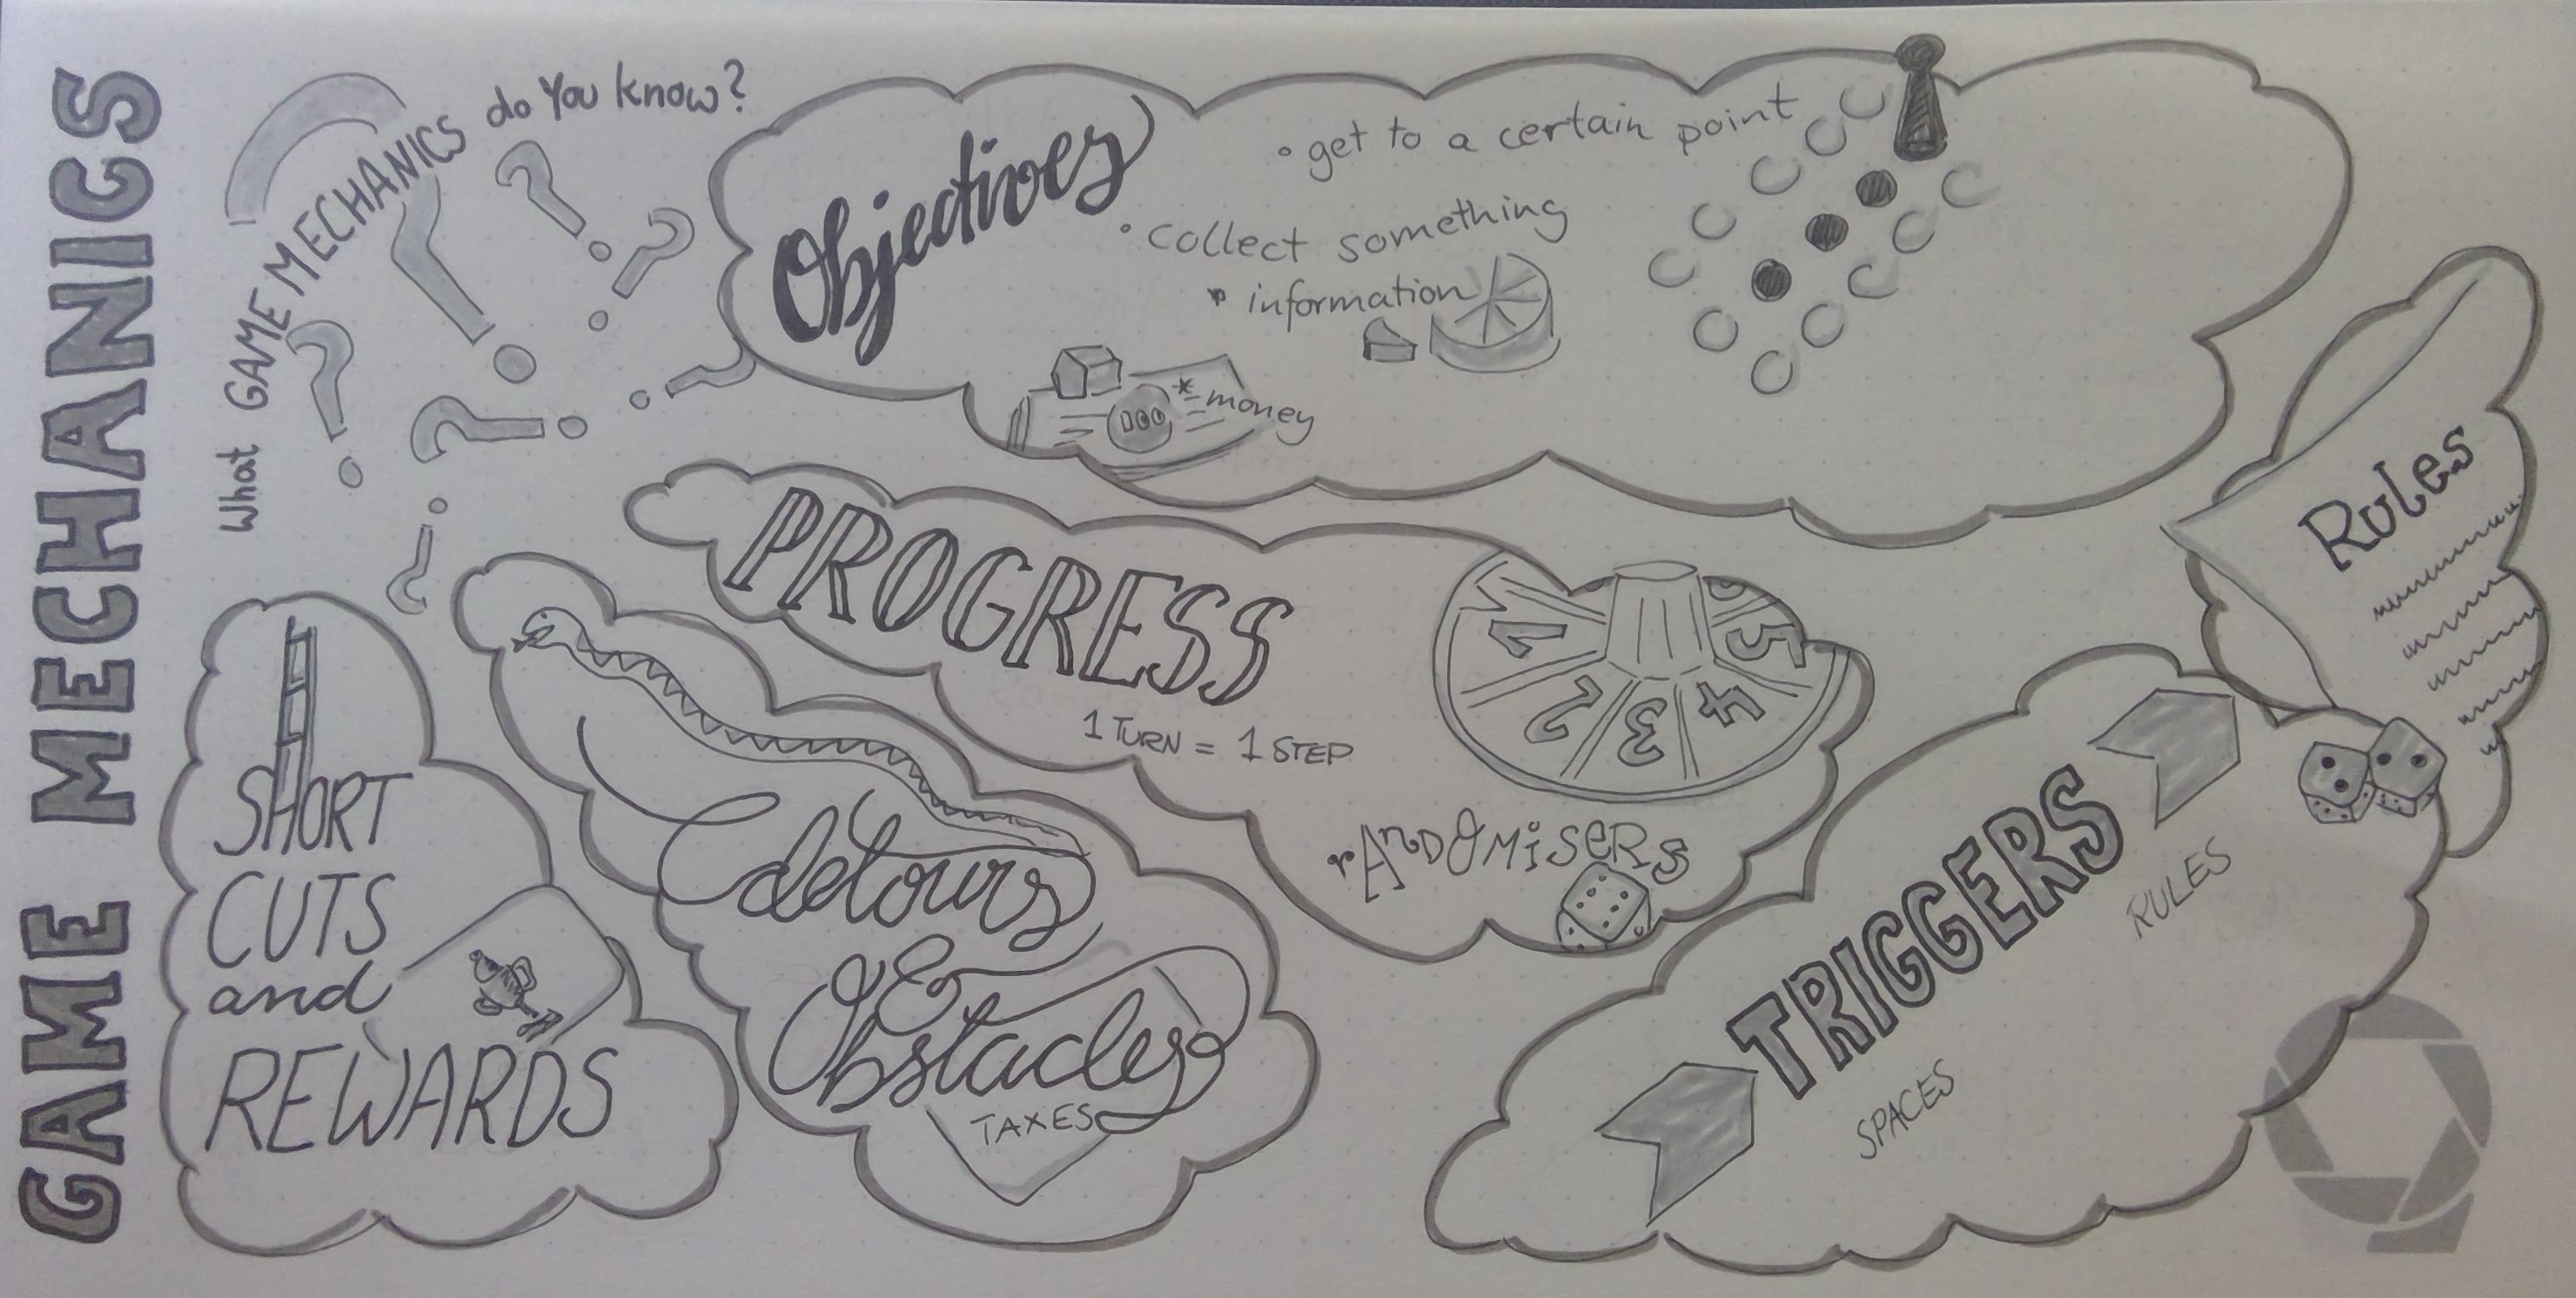 GAME MECHANICS
What GAME MECHANICS do You know?
Objectives
• get to a certain point
• collect something
* information
* money
100
PROGRESS
1 TURN = 1 STEP
1 2 3 4 5 6
rANDOMiSeRS
Rules
SHORT
CUTS
and
REWARDS
detours
&
Obstacles
TAXES
TRIGGERS
RULES
SPACES